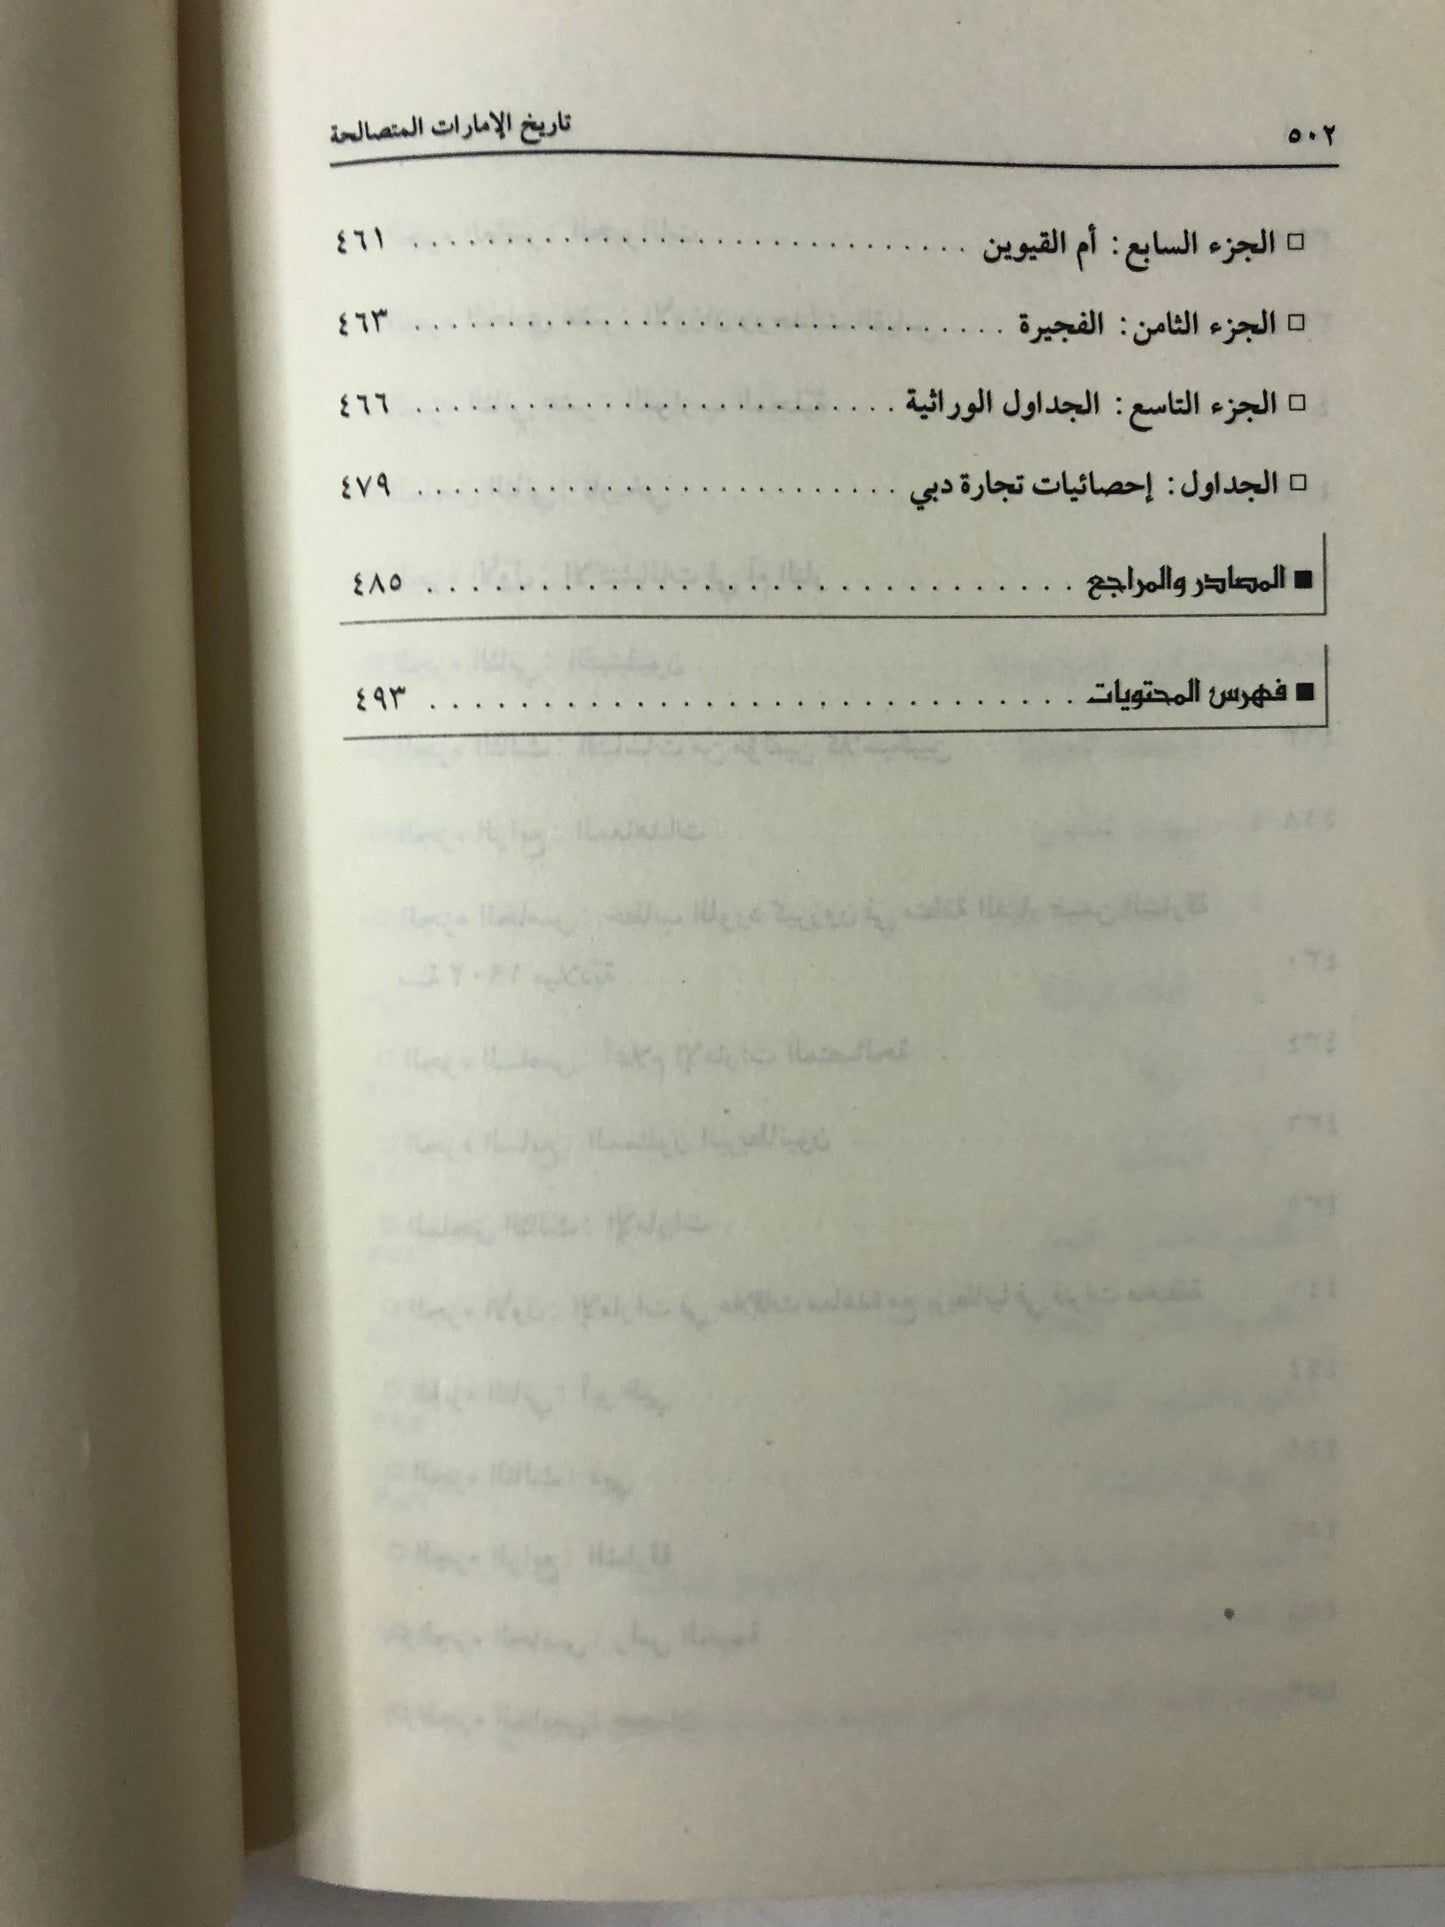 ٥٠٢ تاريخ الإمارات المتصالحة
□ الجزء السابع: أم القيوين ٤٦١
□ الجزء الثامن: الفجيرة ٤٦٣
□ الجزء التاسع: الجداول الوراثية ٤٦٦
□ الجداول: إحصائيات تجارة دبي ٤٧٩
■ المصادر والمراجع ٤٨٥
■ فهرس المحتويات ٤٩٣